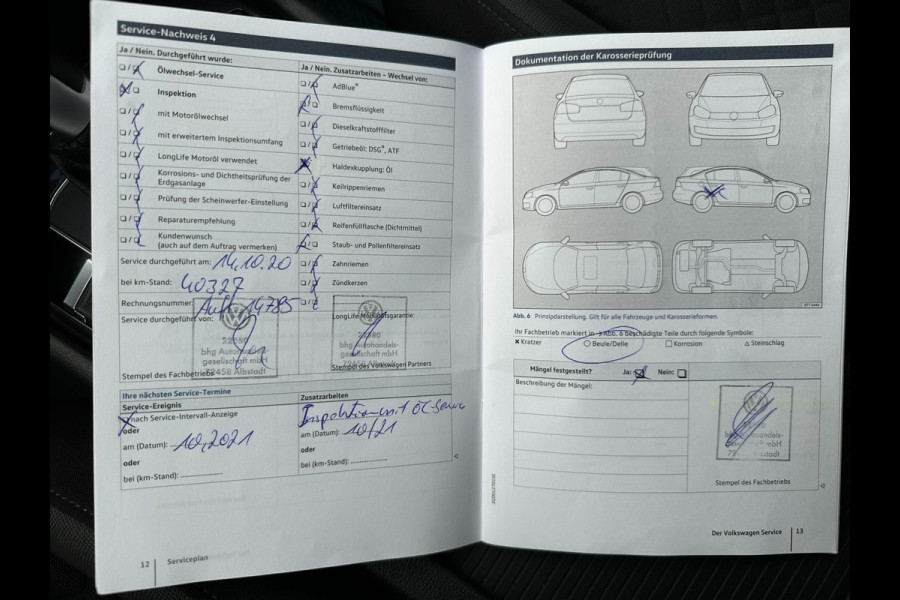 Service-Nachweis 4
Ja / Nein. Durchgeführt wurde:
Ölwechsel-Service
Inspektion
mit Motorölwechsel
mit erweitertem Inspektionsumfang
LongLife Motoröl verwendet
Korrosions- und Dichtheitsprüfung der
Erdgasanlage
Prüfung der Scheinwerfer-Einstellung
Reparaturempfehlung
Kundenwunsch
(auch auf dem Auftrag vermerken)
Service durchgeführt am: 14.10.20
bei km-Stand: 40327
Rechnungsnummer: Auft. 14785
Service durchgeführt von:
bhg Autohandels-
gesellschaft mbH
72458 Albstadt
Stempel des Fachbetriebs
Ja / Nein. Zusatzarbeiten – Wechsel von:
AdBlue®
Bremsflüssigkeit
Dieselkraftstofffilter
Getriebeöl: DSG®, ATF
Haldexkupplung: Öl
Keilrippenriemen
Luftfiltereinsatz
Reifenfüllflasche (Dichtmittel)
Staub- und Pollenfiltereinsatz
Zahnriemen
Zündkerzen
LongLife Mobilitätsgarantie:
bhg Autohandels-
gesellschaft mbH
72458 Albstadt
Stempel des Volkswagen Partners
Ihre nächsten Service-Termine
Service-Ereignis
nach Service-Intervall-Anzeige
oder
am (Datum): 10.2021
oder
bei (km-Stand):
Zusatzarbeiten
Inspektion mit Öl-Service
am (Datum): 10/21
oder
bei (km-Stand):
12 Serviceplan
Dokumentation der Karosserieprüfung
Abb. 6 Prinzipdarstellung. Gilt für alle Fahrzeuge und Karosserieformen.
Ihr Fachbetrieb markiert in Abb. 6 beschädigte Teile durch folgende Symbole:
Kratzer
Beule/Delle
Korrosion
Steinschlag
Mängel festgestellt? Ja: Nein:
Beschreibung der Mängel:
Stempel des Fachbetriebs
Der Volkswagen Service 13